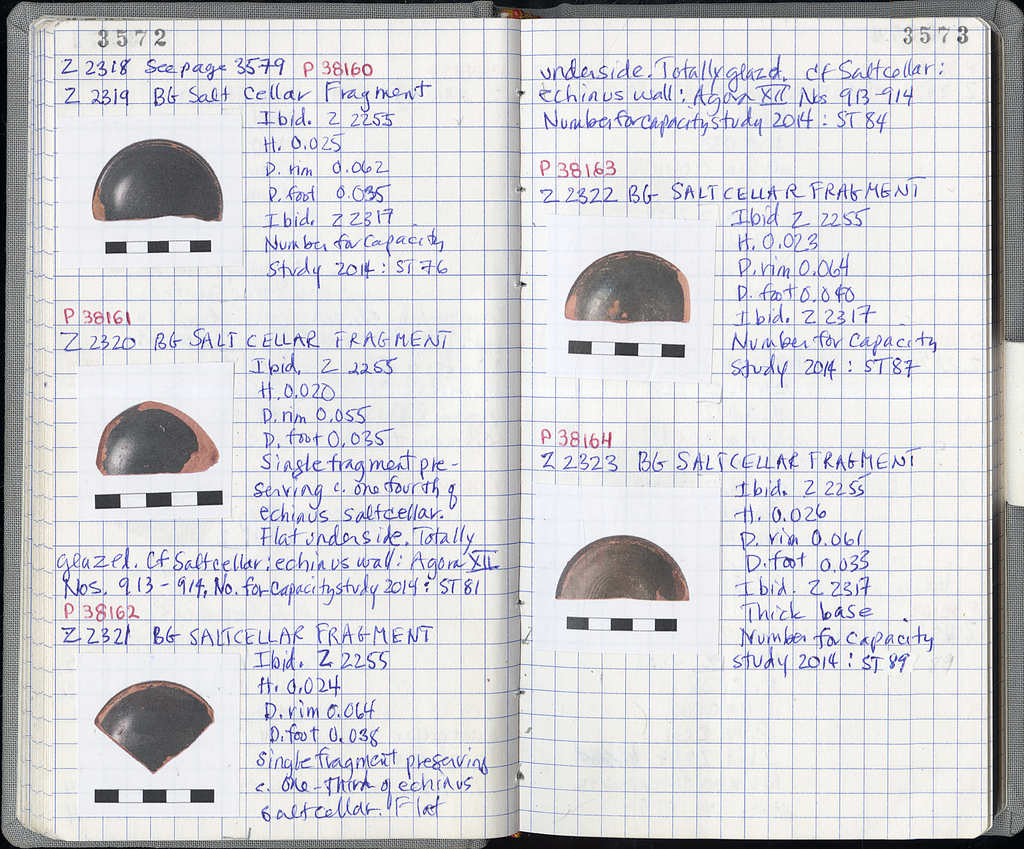 3572
Z 2318 See page 3579 P 38160
Z 2319 BG Salt Cellar Fragment
Ibid. Z 2255
H. 0.025
D. rim 0.062
D. foot 0.035
Ibid. Z 2317
Number for Capacity
Study 2014 : ST 76
P 38161
Z 2320 BG SALT CELLAR FRAGMENT
Ibid. Z 2255
H. 0.020
D. rim 0.055
D. foot 0.035
Single fragment pre-
serving c. one fourth of
echinus saltcellar.
Flat underside. Totally
glazed. Cf Saltcellar: echinus wall: Agora XII
Nos. 913-914. No. for Capacity study 2014 : ST 81
P 38162
Z 2321 BG SALTCELLAR FRAGMENT
Ibid. Z 2255
H. 0.024
D. rim 0.064
D. foot 0.038
Single fragment preserving
c. one-third of echinus
saltcellar. Flat
3573
underside. Totally glazd. cf Saltcellar:
echinus wall: Agora XII Nos 913-914
Number for capacity study 2014 : ST 84
P 38163
Z 2322 BG SALTCELLAR FRAGMENT
Ibid Z 2255
H. 0.023
D. rim 0.064
D. foot 0.040
Ibid. Z 2317
Number for Capacity
study 2014 : ST 87
P 38164
Z 2323 BG SALTCELLAR FRAGMENT
Ibid. Z 2255
H. 0.026
D. rim 0.061
D. foot 0.033
Ibid. Z 2317
Thick base
Number for Capacity
study 2014 : ST 89